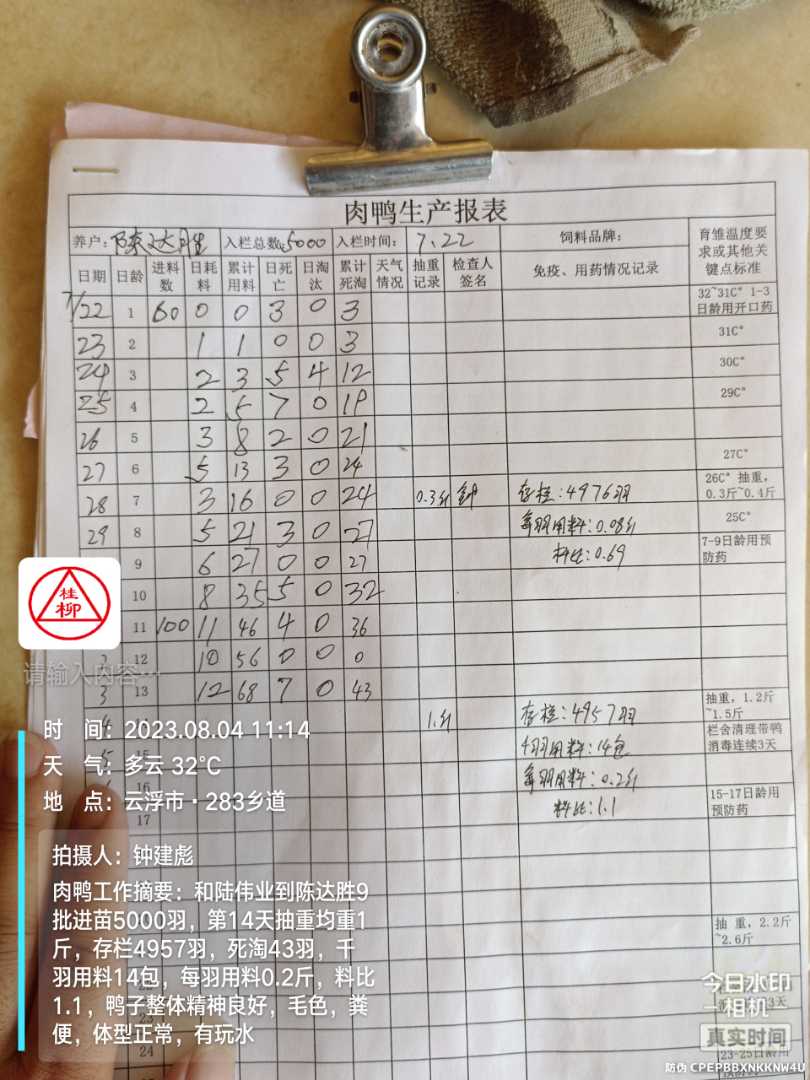 肉鸭生产报表
养户: 陈达胜 入栏总数: 5000 入栏时间: 7.22 饲料品牌: 育雏温度要求或其他关键点标准
日期 日龄 进料数 日耗料 累计用料 日死亡 日淘汰 累计死淘 天气情况 抽重记录 检查人签名 免疫、用药情况记录
7/22 1 60 0 0 3 0 3 32~31C° 1-3日龄用开口药
23 2 1 1 0 0 3 31C°
24 3 2 3 5 4 12 30C°
25 4 2 5 7 0 19 29C°
26 5 3 8 2 0 21
27 6 5 13 3 0 24 27C°
28 7 3 16 0 0 24 0.3斤 钟 存栏:4976羽 26C° 抽重,0.3斤~0.4斤
29 8 5 21 3 0 27 每羽用料:0.08斤 25C°
9 6 27 0 0 27 料比:0.69 7-9日龄用预防药
10 8 35 5 0 32
11 100 11 46 4 0 36
2 12 10 56 0 0 0
3 13 12 68 7 0 43
4 1斤 存栏:4957羽 抽重,1.2斤~1.5斤
5 15 千羽用料:14包 栏舍清理带鸭消毒连续3天
16 每羽用料:0.2斤
17 料比:1.1 15-17日龄用预防药
抽重,2.2斤~2.6斤
3天
24 23-25日龄用
桂柳
请输入内容...
时 间: 2023.08.04 11:14
天 气: 多云 32℃
地 点: 云浮市·283乡道
拍摄人: 钟建彪
肉鸭工作摘要: 和陆伟业到陈达胜9
批进苗5000羽, 第14天抽重均重1
斤, 存栏4957羽, 死淘43羽, 千
羽用料14包, 每羽用料0.2斤, 料比
1.1, 鸭子整体精神良好, 毛色, 粪
便, 体型正常, 有玩水
今日水印
相机
真实时间
防伪 CPEPBBXNKKNW4U